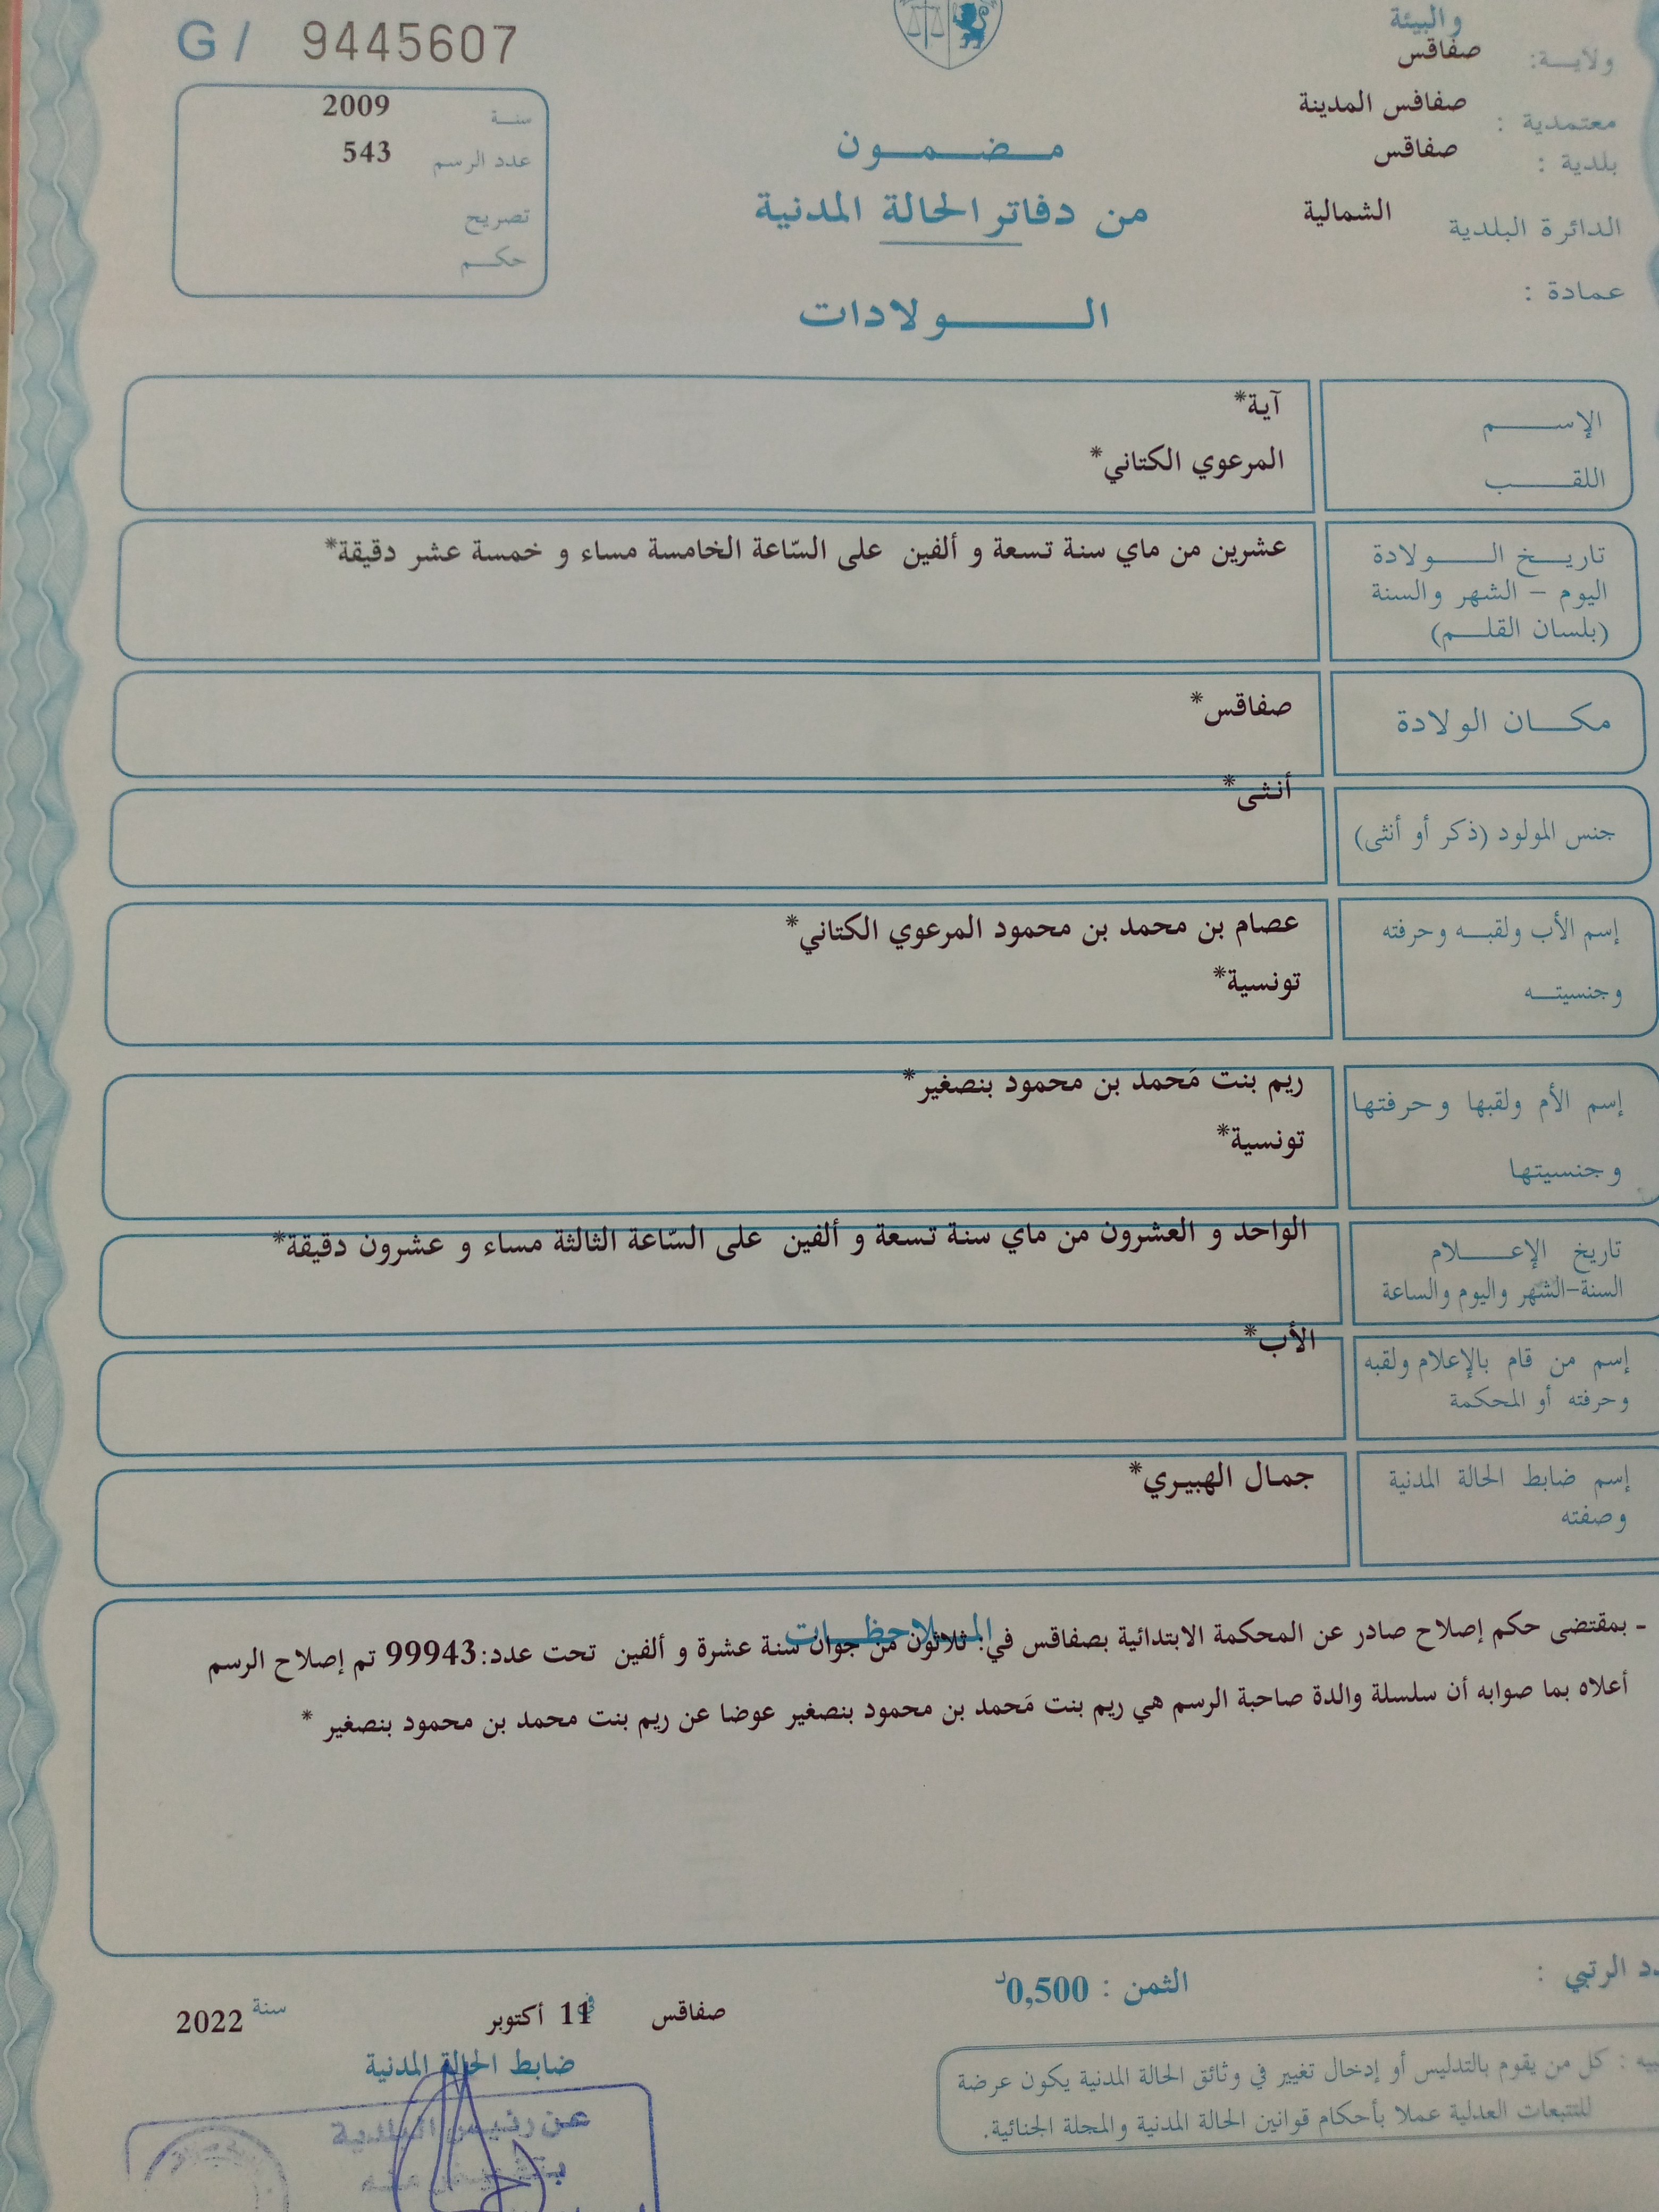 والبيئة
ولاية: صفاقس
معتمدية : صفاقس المدينة
بلدية : صفاقس
الدائرة البلدية الشمالية
عمادة :
G/ 9445607
سنة 2009
عدد الرسم 543
تصريح
حكم
مضمون
من دفاتر الحالة المدنية
الولادات
الإسم آية*
اللقب المرعوي الكتاني*
تاريخ الولادة عشرين من ماي سنة تسعة و ألفين على السّاعة الخامسة مساء و خمسة عشر دقيقة*
اليوم – الشهر والسنة
(بلسان القلم)
مكان الولادة صفاقس*
جنس المولود (ذكر أو أنثى) أنثى*
إسم الأب ولقبه وحرفته عصام بن محمد بن محمود المرعوي الكتاني*
وجنسيته تونسية*
إسم الأم ولقبها وحرفتها ريم بنت مَحمد بن محمود بنصغير*
وجنسيتها تونسية*
تاريخ الإعلام الواحد و العشرون من ماي سنة تسعة و ألفين على السّاعة الثالثة مساء و عشرون دقيقة*
السنة-الشهر واليوم والساعة
إسم من قام بالإعلام ولقبه الأب*
وحرفته أو المحكمة
إسم ضابط الحالة المدنية جمال الهبيري*
وصفته
الملاحظات
- بمقتضى حكم إصلاح صادر عن المحكمة الابتدائية بصفاقس في: ثلاثون من جوان سنة عشرة و ألفين تحت عدد:99943 تم إصلاح الرسم
أعلاه بما صوابه أن سلسلة والدة صاحبة الرسم هي ريم بنت مَحمد بن محمود بنصغير عوضا عن ريم بنت محمد بن محمود بنصغير *
الرتبي :
الثمن : 0,500د
صفاقس في 11 أكتوبر سنة 2022
ضابط الحالة المدنية
عن رئيس البلدية
: كل من يقوم بالتدليس أو إدخال تغيير في وثائق الحالة المدنية يكون عرضة
للتتبعات العدلية عملا بأحكام قوانين الحالة المدنية والمجلة الجنائية.